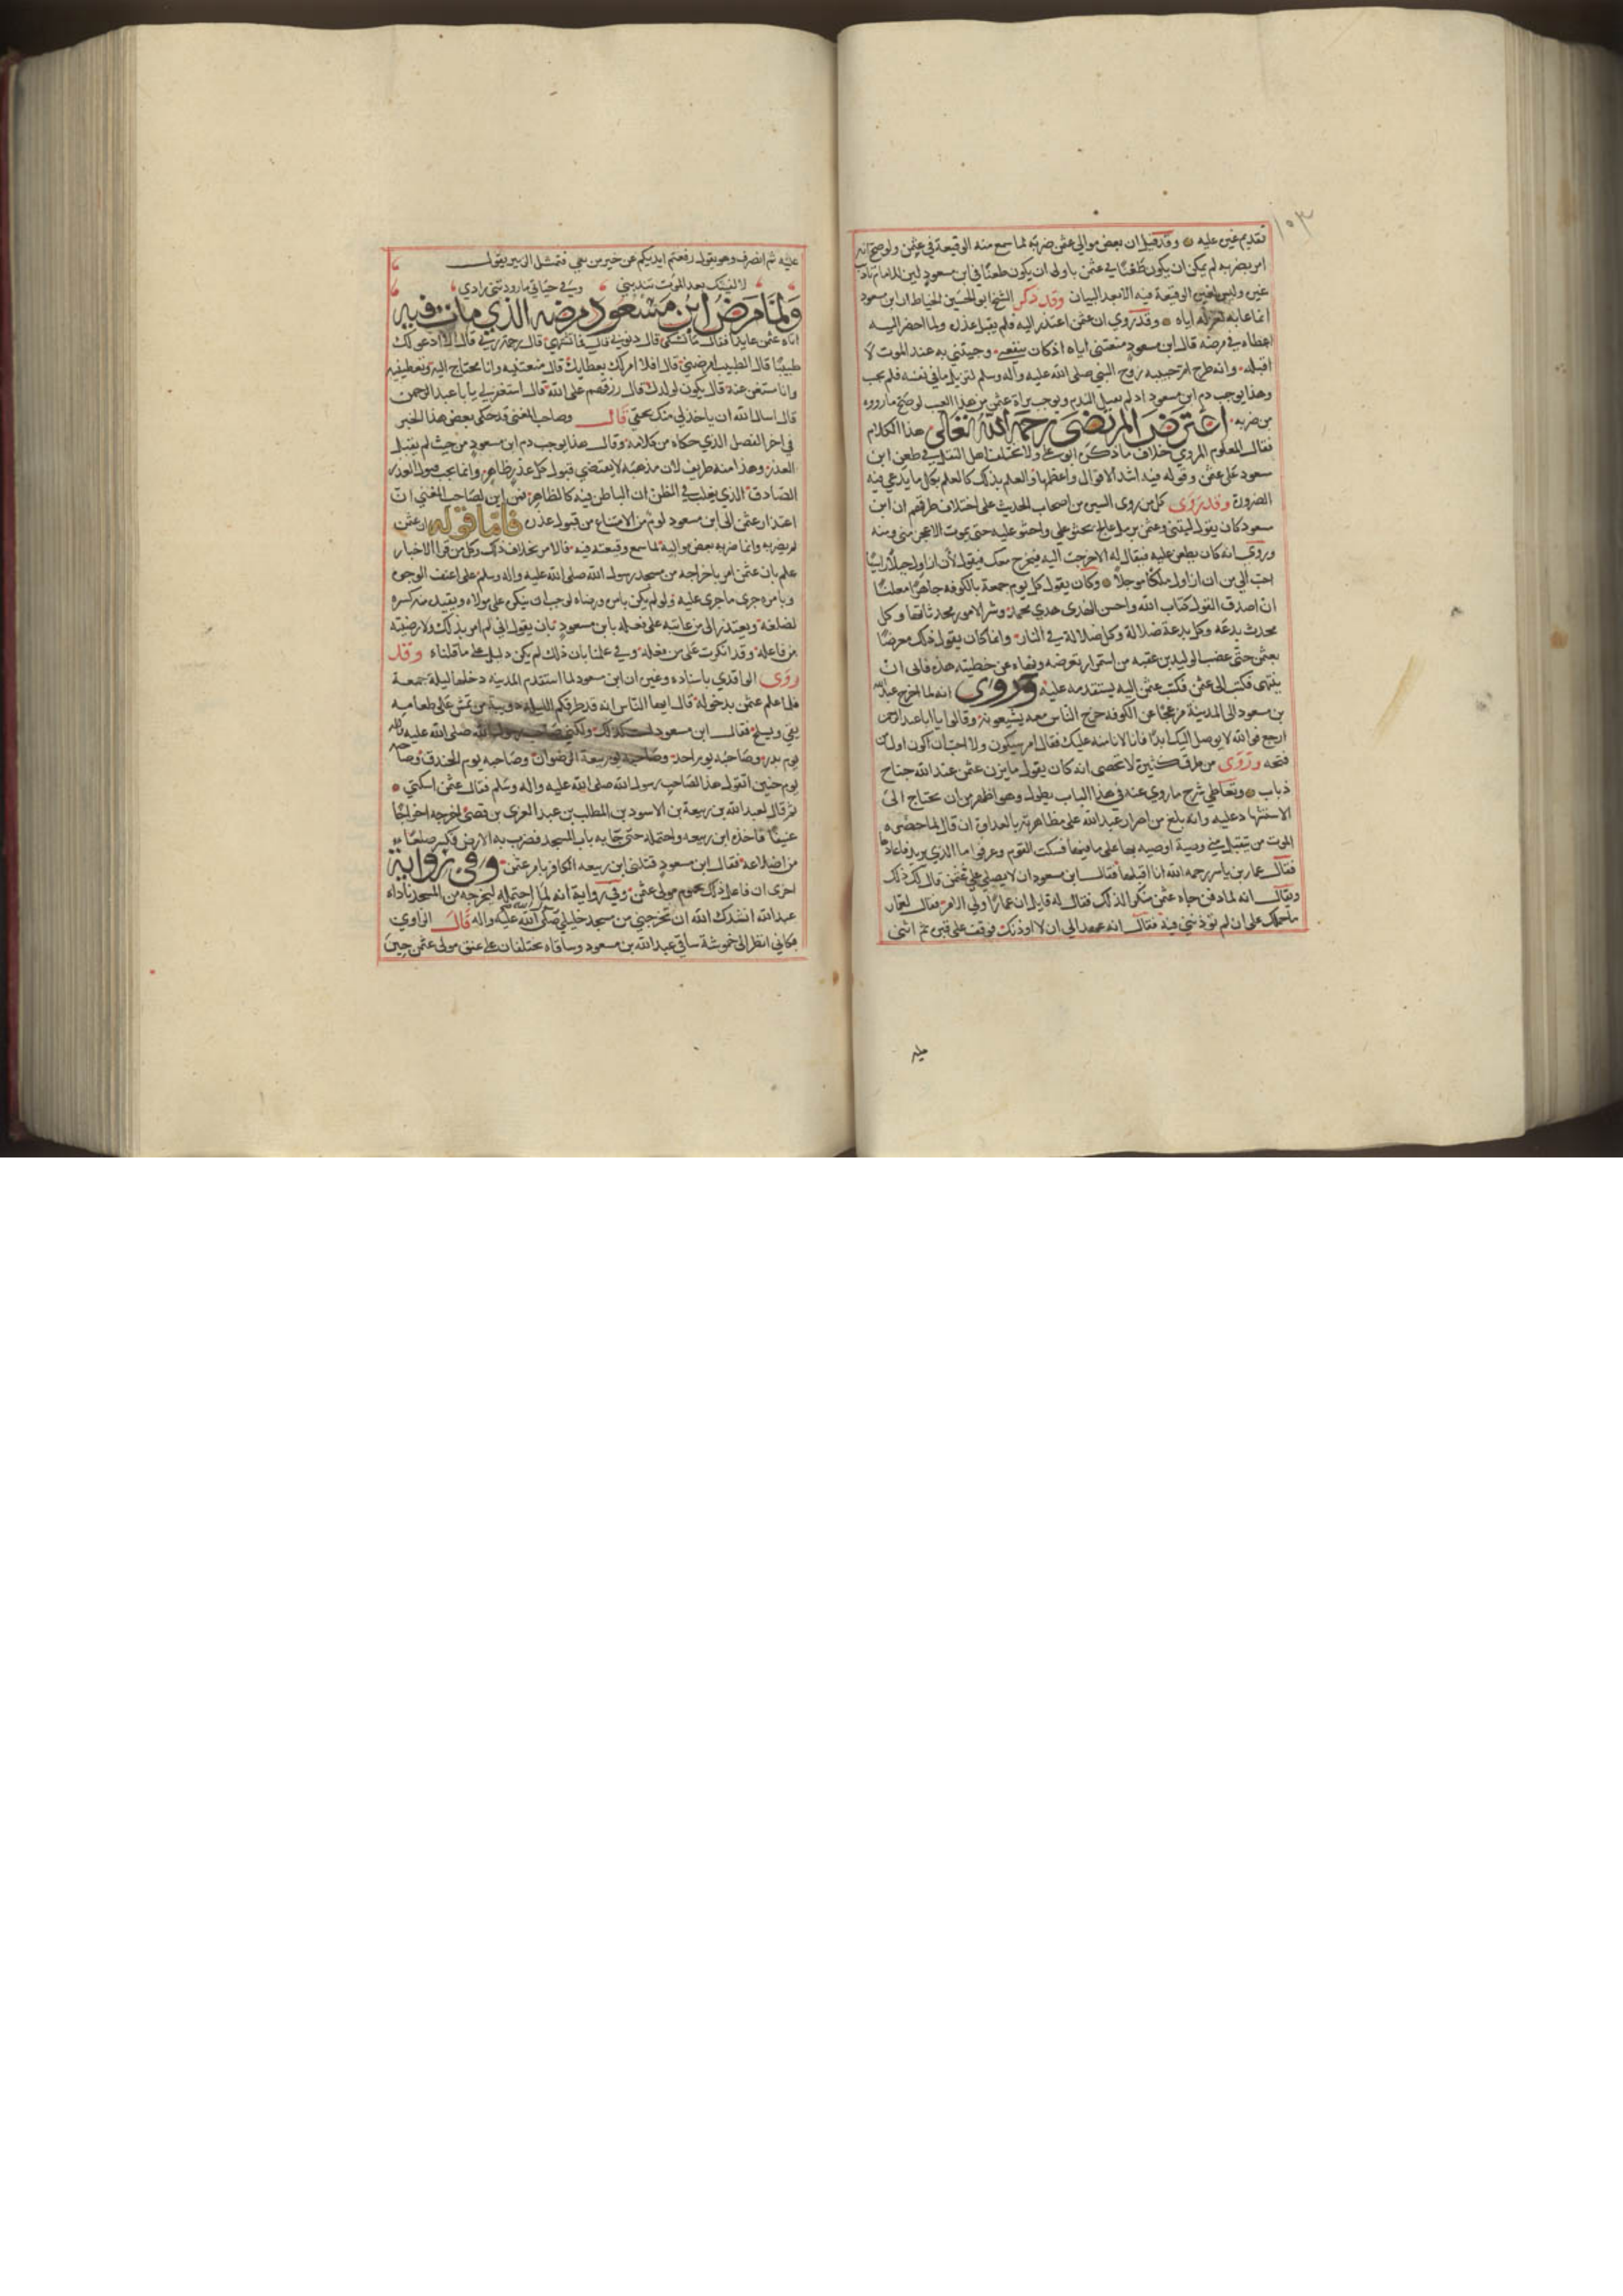 ١٠٣
تقديم غيره عليه وقد قيل ان بعض موالي عثمن ضربه لما سمع منه الوقيعة في عثمن ولو صح انه
امر بضربه لم يكن ان يكون طعنا في عثمن باولى ان يكون طعنا في ابن مسعود لان للامام تاديب
غيره وليس لغيره الوقيعة فيه الا بعد البيان وقد ذكر الشيخ ابو الحسين الخياط ان ابن مسعود
انما عابه لعزله اياه وقد روي ان عثمن اعتذر اليه فلم يقبل عذره ولما احضر اليه
عطاه في مرضه قال ابن مسعود منعتني اياه اذ كان ينفعني وجيتني به عند الموت لا
اقبله وانه طرح ام حبيبه زوج النبي صلى الله عليه وآله وسلم لتزيل ما في نفسه فلم يجب
وهذا يوجب ذم ابن مسعود اذ لم يقبل الندم ويوجب براة عثمن من هذا العيب لو صح ما رووه
من ضربه اعترض المرتضى رحمه الله تعالى هذا الكلام
فقال المعلوم المروي خلاف ما ذكره ابو علي ولا يختلف اهل النقل في طعن ابن
مسعود على عثمن وقوله فيه اشد الاقوال واعظمها والعلم بذلك كالعلم بكل ما يدعي فيه
الضرورة وقد روى كل من روى السير من اصحاب الحديث على اختلاف طرقهم ان ابن
مسعود كان يقول ليتني وعثمن برمل عالج يحثو علي واحثو عليه حتى يموت الاعجز مني ومنه
وروى انه كان يطعن عليه فيقال له الا خرجت اليه فنخرج معك فيقول لان ازاول جبلا راسيا
احب الي من ان ازاول ملكا موجلا وكان يقول كل يوم جمعة بالكوفه جاهرا معلنا
ان اصدق القول كتاب الله واحسن الهدى هدي محمد وشر الامور محدثاتها وكل
محدث بدعه وكل بدعة ضلالة وكل ضلالة في النار وانما كان يقول ذلك معرضا
بعثمن حتى غضب الوليد بن عقبه من استمرار تعرضه ونهاه عن خطبته هذه فابى ان
ينتهى فكتب الى عثمن فكتب عثمن اليه يستقدمه عليه وروى انه لما اخرج عبد الله
بن مسعود الى المدينة مزعجا عن الكوفه خرج الناس معه يشيعونه وقالوا يا ابا عبد الرحمن
ارجع فوالله لا يوصل اليك ابدا فانا لا نامنه عليك فقال امر سيكون ولا احب ان اكون اول من
فتحه وروى من طرق كثيرة لا تحصى انه كان يقول ما يزن عثمن عند الله جناح
ذباب وتعاطي شرح ما روي عنه في هذا الباب يطول وهو اظهر من ان يحتاج الى
الاستشهاد عليه وانه بلغ من اصرار عبد الله على مظاهرته بالعداوة ان قال لما حضره
الموت من يتقبل مني وصية اوصيه بها على ما فيها فسكت القوم وعرفوا ما الذي يريد فاعادها
فقال عمار بن ياسر رحمه الله انا اقبلها فقال ابن مسعود ان لا يصلي علي عثمن قال لك ذلك
ويقال انه لما دفن جاه عثمن منكرا لذلك فقال له قايل ان عمارا ولي الامر فقال لعمار
ما حملك على ان لم توذني فيه فقال انه عهد الي ان لا اوذنك فوقف على قبره ثم اثنى
عليه
عليه ثم انصرف وهو يقول رفعتم ايديكم عن خير من بقي فتمثل الزبير بقول
لا لفينك بعد الموت تندبني وفي حياتي ما زودتني زادي
ولما مرض ابن مسعود مرضه الذي مات فيه
اتاه عثمن عايدا فقال ما تشتكي قال ذنوبي قال فما تشتهي قال رحمة ربي قال الا ادعو لك
طبيبا قال الطبيب امرضني قال افلا امر لك بعطايك قال منعتنيه وانا محتاج اليه وتعطينيه
وانا مستغن عنه قال يكون لولدك قال رزقهم على الله قال استغفر لي يا با عبد الرحمن
قال اسال الله ان ياخذ لي منك بحقي قال وصاحب المغني قد حكى بعض هذا الخبر
في اخر الفصل الذي حكاه من كلامه وقال هذا يوجب ذم ابن مسعود من حيث لم يقبل
العذر وهذا منه طريف لان مذهبه لا يقتضي قبول كل عذر ظاهر وانما يجب قبول العذر
الصادق الذي يغلب في الظن ان الباطن فيه كالظاهر فمن اين لصاحب المغني ان
اعتذار عثمن الى ابن مسعود لوم من الامتناع من قبول عذره فاما قوله ان عثمن
لم يضربه وانما ضربه بعض مواليه لما سمع وقيعته فيه فالامر بخلاف ذلك وكل من قرا الاخبار
علم بان عثمن امر باخراجه من مسجد رسول الله صلى الله عليه واله وسلم على اعنف الوجوه
وبامره جرى ما جرى عليه ولو لم يكن بامره ورضاه لوجب ان ينكر على مولاه ويقيد من كسره
لضلعه ويعتذر الى من عاتبه على فعله بابن مسعود بان يقول اني لم امر بذلك ولا رضيته
من فاعله وقد انكرت على من فعله وفي علمنا بان ذلك لم يكن دليل على ما قلناه وقد
روى الواقدي باسناده وغيره ان ابن مسعود لما استقدم المدينه دخلها ليلة جمعة
فلما علم عثمن بدخوله قال ايها الناس انه قد طرقكم الليلة دويبة من تمش على طعامه
يقي ويسلح فقال ابن مسعود لست كذلك ولكني صاحب رسول الله صلى الله عليه واله
يوم بدر وصاحبه يوم احد وصاحبه يوم بيعة الرضوان وصاحبه يوم الخندق وصاحبه
يوم حنين اتقول هذا لصاحب رسول الله صلى الله عليه واله وسلم فقال عثمن اسكتي
ثم قال لعبد الله بن ربيعة بن الاسود بن المطلب بن عبد العزى بن قصي اخرجه اخراجا
عنيفا فاخذه ابن ربيعه واحتمله حتى جا به باب المسجد فضرب به الارض فكسر ضلعا
من اضلاعه فقال ابن مسعود قتلني ابن ربيعه الكافر بامر عثمن وفي رواية
اخرى ان فاعل ذلك يحموم مولى عثمن وفي رواية انه لما احتمله ليخرجه من المسجد ناداه
عبد الله انشدك الله ان تخرجني من مسجد خليلي صلى الله عليه واله قال الراوي
فكاني انظر الى حموشة ساقي عبد الله بن مسعود وساقاه يختلفان على عنق مولى عثمن حين